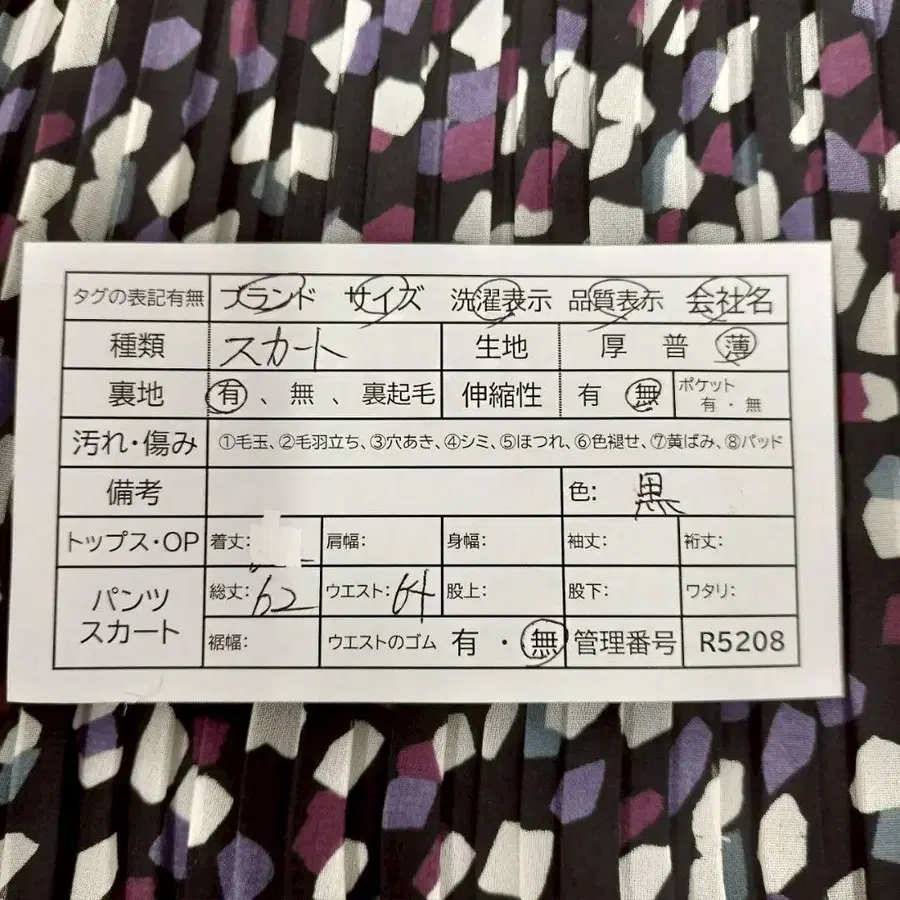 タグの表記有無 ブランド サイズ 洗濯表示 品質表示 会社名
種類 スカート 生地 厚 普 薄
裏地 有 、 無 、 裏起毛 伸縮性 有 無 ポケット 有 ・ 無
汚れ・傷み ①毛玉、②毛羽立ち、③穴あき、④シミ、⑤ほつれ、⑥色褪せ、⑦黄ばみ、⑧パッド
備考 色: 黒
トップス・OP 着丈: 肩幅: 身幅: 袖丈: 裄丈:
パンツ スカート 総丈: 62 ウエスト: 64 股上: 股下: ワタリ:
裾幅: ウエストのゴム 有 ・ 無 管理番号 R5208